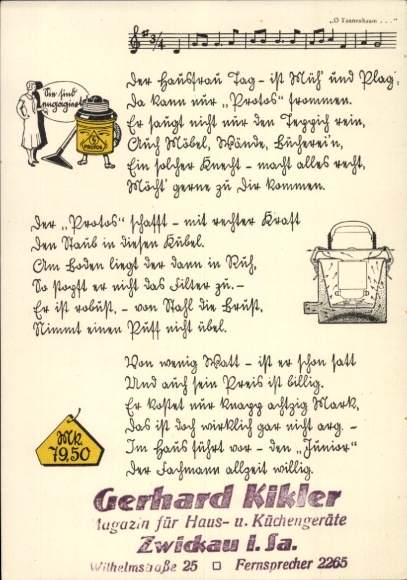 „O Tannenbaum . . .“
Der Hausfrau Tag – ist Müh' und Plag',
Da kann nur „Protos“ frommen.
Er saugt nicht nur den Teppich rein,
Auch Möbel, Wände, Bücherei'n,
Ein solcher Knecht – macht alles recht,
Möcht' gerne zu Dir kommen.
Sie sind
engagiert
PROTOS
Der „Protos“ schafft – mit rechter Kraft
Den Staub in diesen Kübel.
Am Boden liegt der dann in Ruh,
So stopft er nicht das Filter zu. –
Er ist robust, – von Stahl die Brust,
Nimmt einen Puff nicht übel.
Von wenig Watt – ist er schon satt
Und auch sein Preis ist billig.
Er kostet nur knapp achtzig Mark,
Das ist doch wirklich gar nicht arg. –
Im Haus führt vor – den „Junior“
Der Fachmann allzeit willig.
Mk
79,50
Gerhard Kikler
Magazin für Haus- u. Küchengeräte
Zwickau i. Sa.
Wilhelmstraße 25 □ Fernsprecher 2265